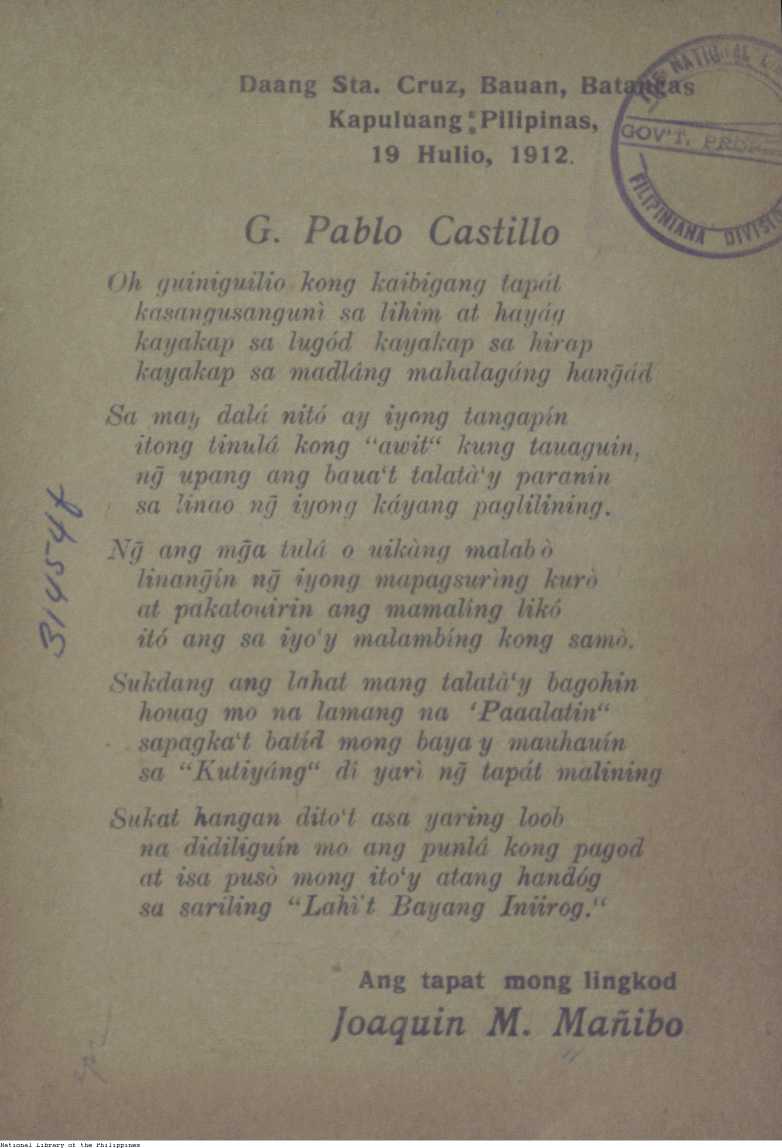 Daang Sta. Cruz, Bauan, Batangas
Kapuluang Pilipinas,
19 Hulio, 1912.
THE NATIONAL
GOV'T. PROP
FILIPINIANA DIVISI
G. Pablo Castillo
Oh guiniguilio kong kaibigang tapát
kasangusangunì sa lihim at hayág
kayakap sa lugód kayakap sa hirap
kayakap sa madláng mahalagáng hang̃ád
Sa may dalá nitó ay iyong tangapín
itong tinulá kong “awit“ kung tauaguin,
ng̃ upang ang baua‘t talatà‘y paranín
sa linao ng̃ iyong káyang paglilining.
Ng̃ ang mg̃a tulá o uikàng malabò
linang̃ín ng̃ iyong mapagsurìng kurò
at pakatouirin ang mamalíng likó
itó ang sa iyo‘y malambíng kong samò.
Sukdang ang lahat mang talatà‘y bagohin
houag mo na lamang na ‘Paaalatin“
sapagka‘t batíd mong baya y mauhauín
sa “Kutiyáng“ di yarì ng̃ tapát malining
Sukat hangan dito‘t asa yaring loob
na didiliguín mo ang punlá kong pagod
at isa pusò mong ito‘y atang handóg
sa sariling “Lahì't Bayang Iniirog.“
Ang tapat mong lingkod
Joaquin M. Mañibo
National Library of the Philippines